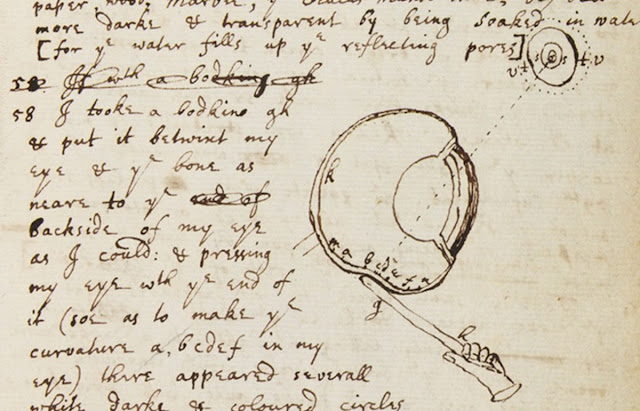 paper, wood, marble, ye Oculus Mundi &c, by
more darke & transparent by being soaked in wate
[for ye water fills up ye reflecting pores]
58 If wth a bodking gh
58 I tooke a bodkine gh
& put it betwixt my
eye & ye bone as
neare to ye end of
backside of my eye
as I could: & pressing
my eye wth ye end of
it (soe as to make ye
curvature a, bcdef in my
eye) there appeared severall
white darke & coloured circles
v t s s t v
k
m a b c d e f n
g
h